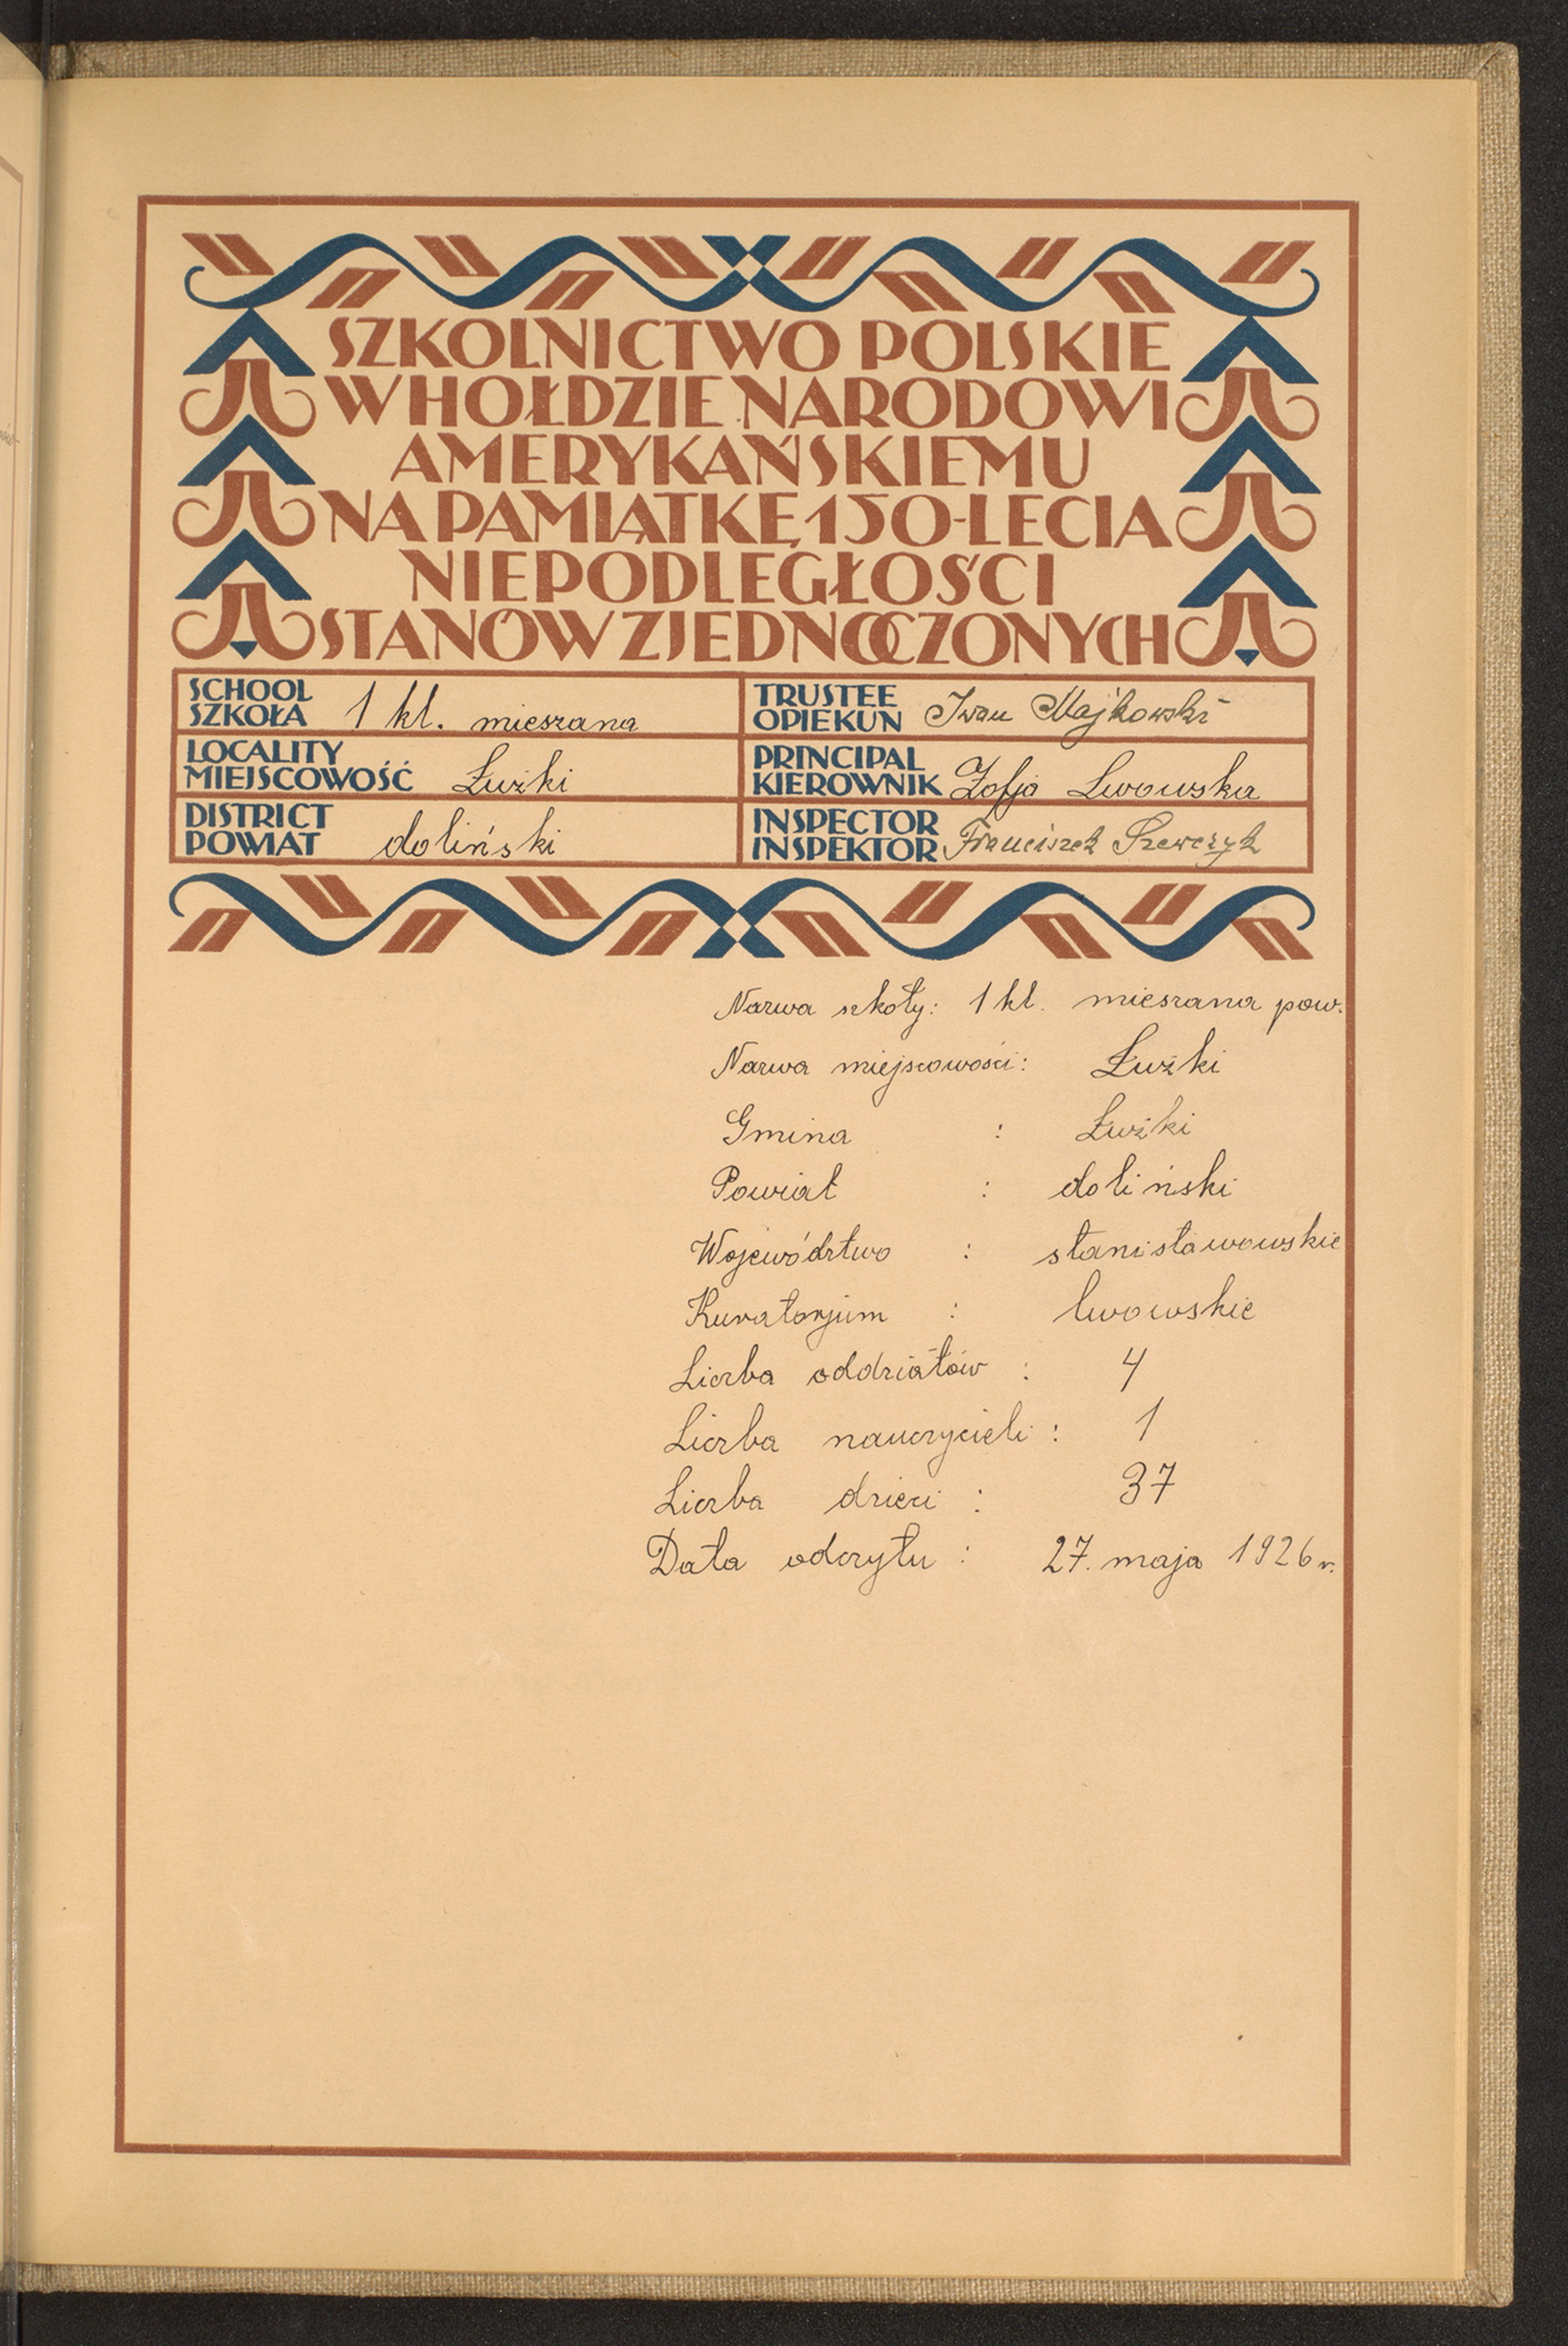 SZKOLNICTWO POLSKIE
W HOŁDZIE NARODOWI
AMERYKAŃSKIEMU
NA PAMIĄTKĘ 150-LECIA
NIEPODLEGŁOŚCI
STANÓW ZJEDNOCZONYCH
SCHOOL
SZKOŁA 1 kl. mieszana
TRUSTEE
OPIEKUN Iwan Majkowski
LOCALITY
MIEJSCOWOŚĆ Łużki
PRINCIPAL
KIEROWNIK Zofja Lwowska
DISTRICT
POWIAT doliński
INSPECTOR
INSPEKTOR Franciszek Szewczyk
Nazwa szkoły: 1 kl. mieszana pow.
Nazwa miejscowości: Łużki
Gmina : Łużki
Powiat : doliński
Województwo : stanisławowskie
Kuratorjum : lwowskie
Liczba oddziałów : 4
Liczba nauczycieli : 1
Liczba dzieci : 37
Data odczytu : 27. maja 1926 r.